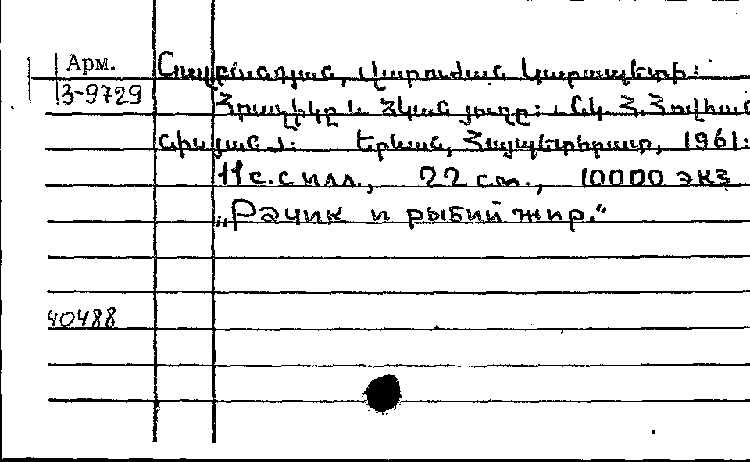 Арм.
3-9729
Վարուժան Կարապետի:
Հրաչիկը և ձկան յուղը: Նկ Հ.
Երևան, Հայպետհրատ, 1961:
11 с. с илл., 22 см., 10000 экз
„Рачик и рыбий жир.“
40488